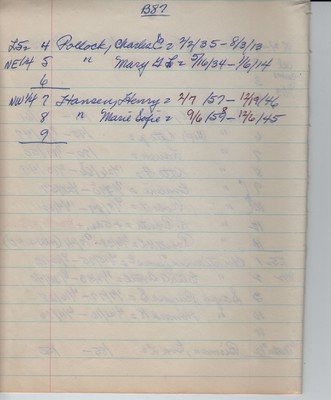 B87
4 Pollock, Charles E = 2/2/35 - 8/3/13
NE1/4 5 " Mary = 5/16/34 - 1/6/14
6
NW1/4 7 Hansen, Henry = 2/7/57 - 12/9/46
8 " Marie Sofie = 9/6/58 - 12/6/45
9